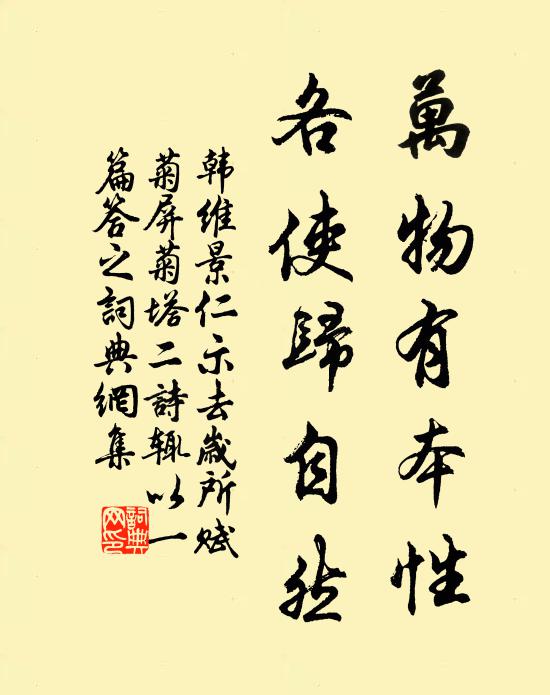 萬物有本性
各使歸自然
韩維景仁示去歲所賦
菊屏菊塔二詩辄以一
篇答之詞典網集
詞典网印